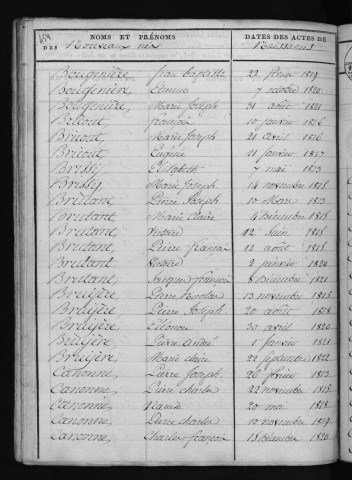 NOMS ET PRÉNOMS DATES DES ACTES DE
DES Nouveaux nés Naissances
Bougenière Jean Baptiste 22 février 1819
Bougenière Etienne 7 octobre 1820
Bougenière Marie Joseph 31 août 1821
Bricout françois 10 janvier 1816
Bricout Marie Joseph 21 avril 1816
Bricout Eugène 11 janvier 1817
Brissy Elisabeth 7 mai 1813
Brissy Marie Joseph 14 novembre 1818
Brulant Pierre Joseph 10 Mars 1813
Brulant Marie Claire 4 Décembre 1815
Brulant 12 Juin 1818
Brulant Pierre françois 12 août 1818
Brulant 2 janvier 1820
Brulant Jacques françois 8 Décembre 1821
Bruyère Pierre Nicolas 13 novembre 1815
Bruyère Pierre Joseph 20 août 1818
Bruyère Eléonore 30 avril 1820
Bruyère Pierre André 1 janvier 1821
Bruyère Marie Claire 22 Septembre 1822
Canonne Pierre Joseph 26 février 1813
Canonne Pierre Charles 22 novembre 1815
Canonne 20 mai 1818
Canonne Pierre Charles 10 novembre 1819
Canonne Charles françois 13 Décembre 1820